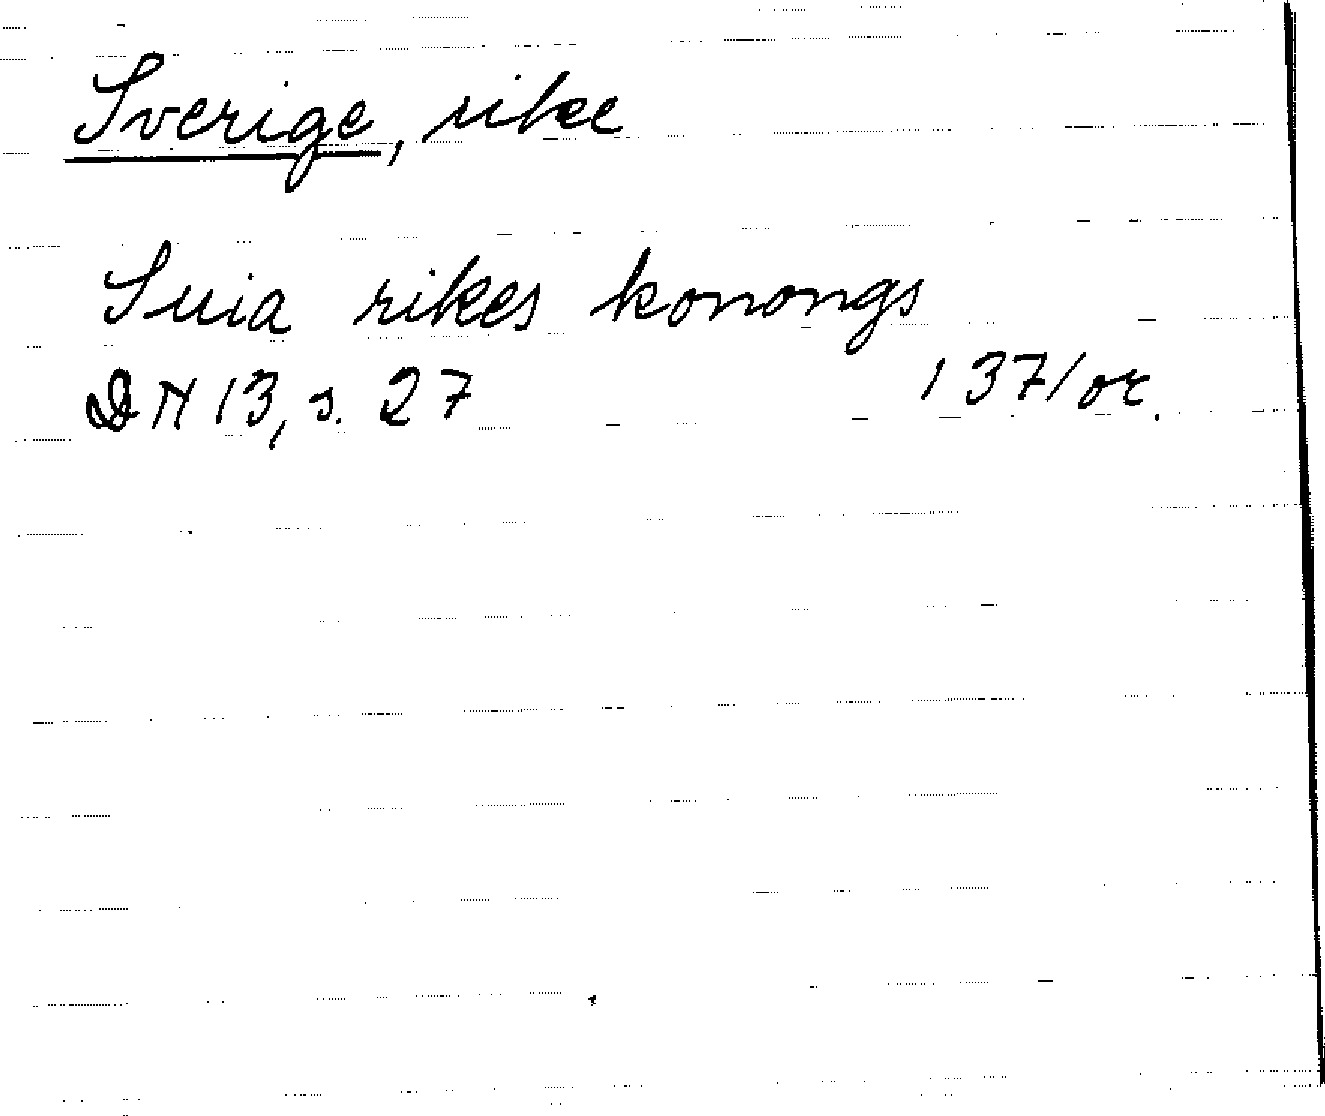 Sverige, rike
Suia rikes konongs
DN 13, s. 27 1371 or.